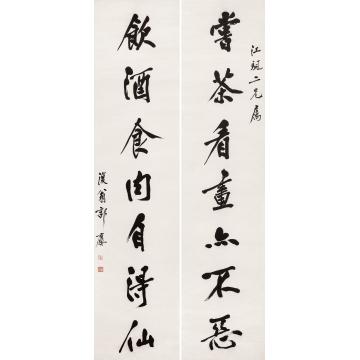 江 二兄屬
嘗茶看畫亦不惡
飲酒食肉自得仙
復翁郭麐